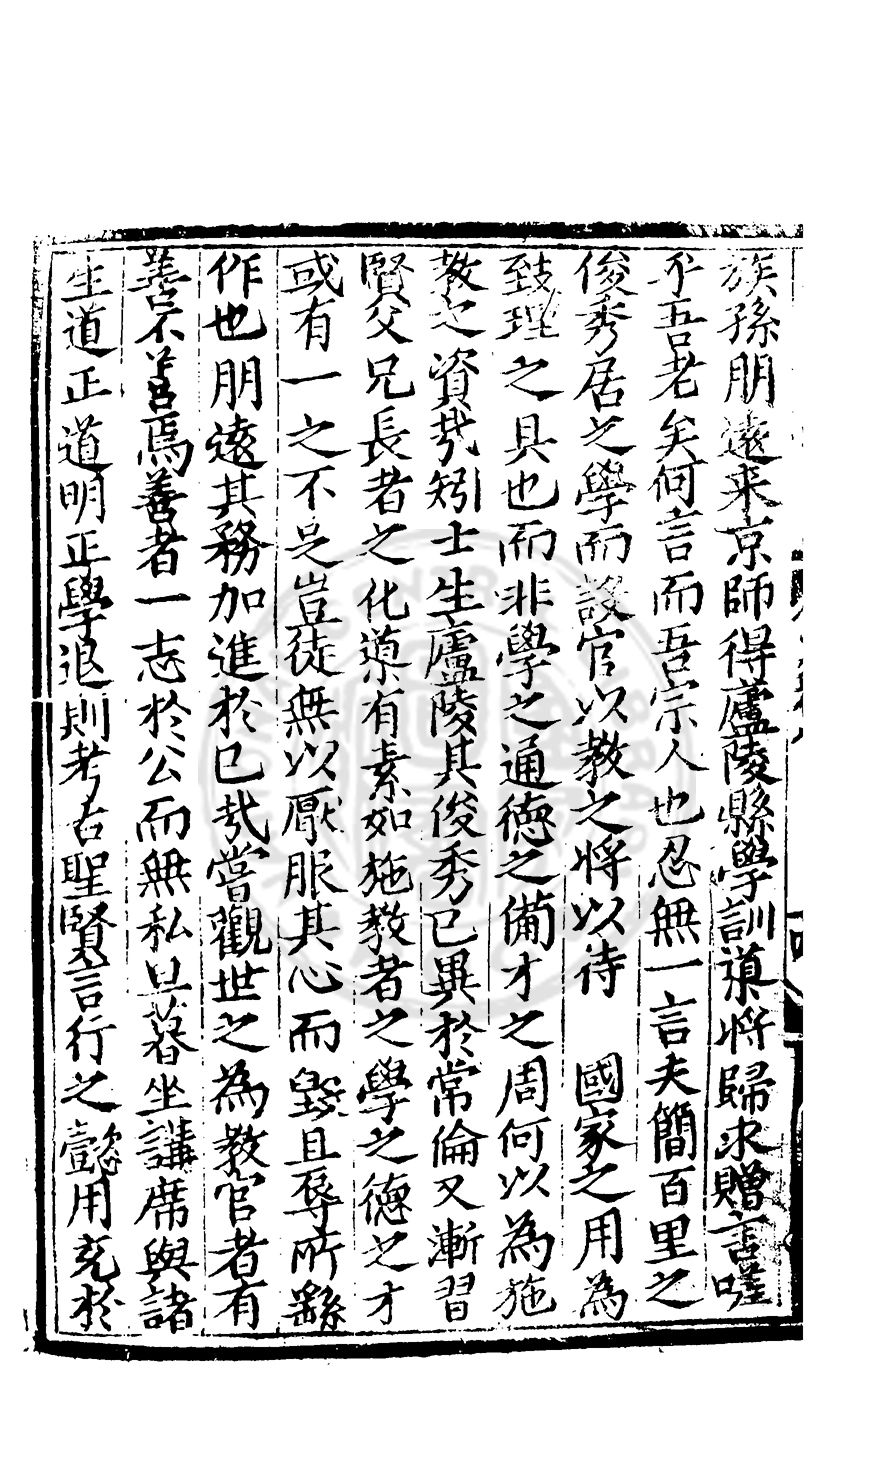 族孫朋遠来京師得廬陵縣學訓導將歸求贈言嗟
乎吾老矣何言而吾宗人也忍無一言夫簡百里之
俊秀居之學而設官以教之將以待 國家之用為
致理之具也而非學之通德之備才之周何以為施
教之資㢤矧士生廬陵其俊秀已異於常倫又漸習
賢父兄長者之化導有素如施教者之學之德之才
或有一之不足豈徒無以厭服其心而毀且辱所繇
作也朋遠其務加進於已㢤嘗觀世之為教官者有
善不善焉善者一志於公而無私旦暮坐講席與諸
生道正道明正學退則考古聖賢言行之懿用充於